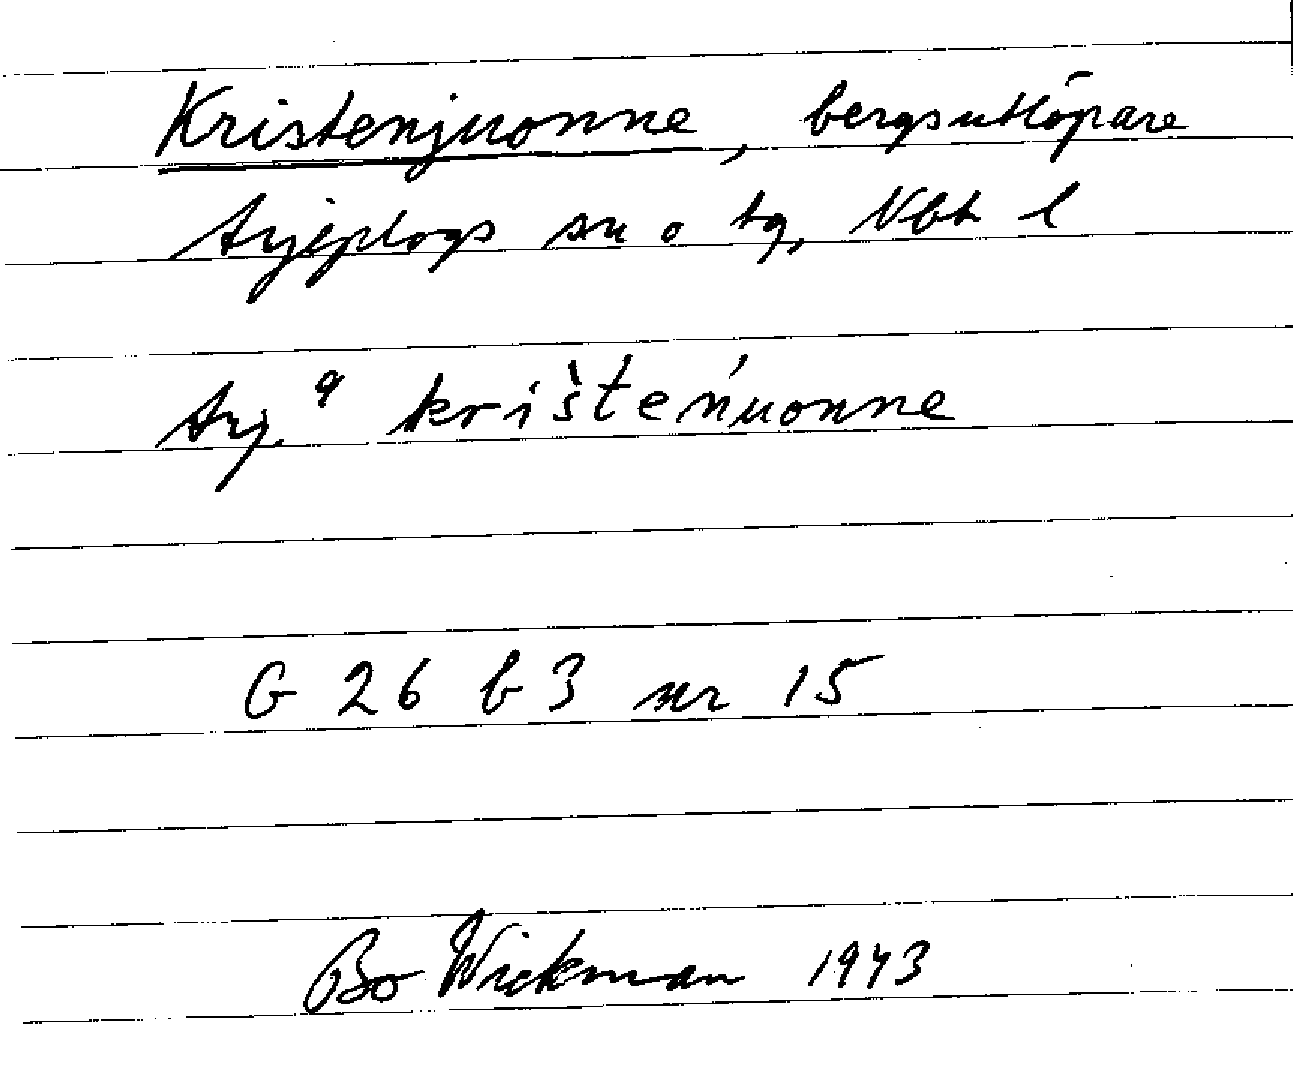 Kristenjuonne, bergsutlöpare
Arjeplogs sn o tg, Vbt l
Arj. q krišteńuonne
G 26 b 3 nr 15
Bo Wickman 1943